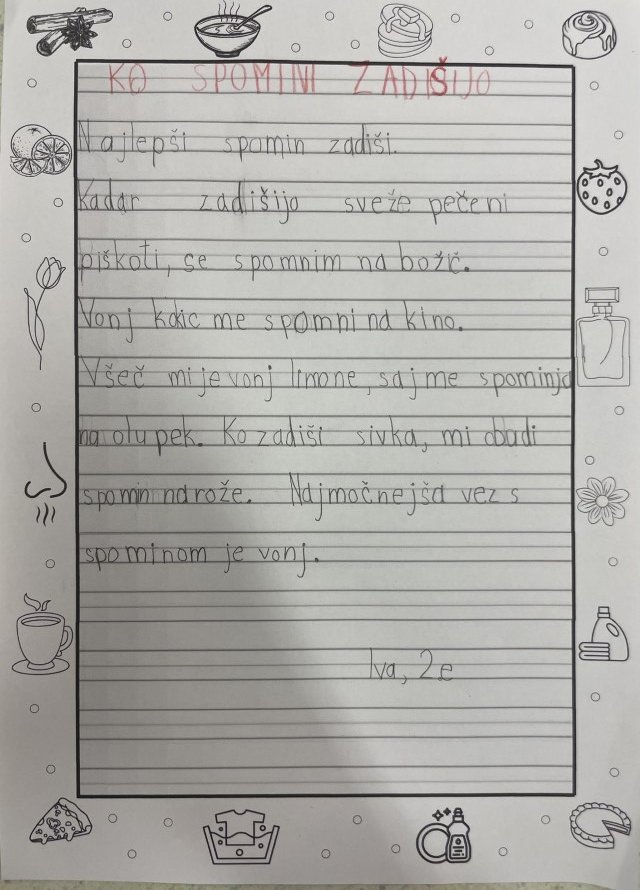 KO SPOMINI ZADIŠIJO
Najlepši spomin zadiši.
Kadar zadišijo sveže pečeni
piškoti, se spomnim na božič.
Vonj kokic me spomni na kino.
Všeč mi je vonj limone, saj me spominja
na olupek. Ko zadiši sivka, mi obudi
spomin na rože. Najmočnejša vez s
spominom je vonj.
Iva, 2.e